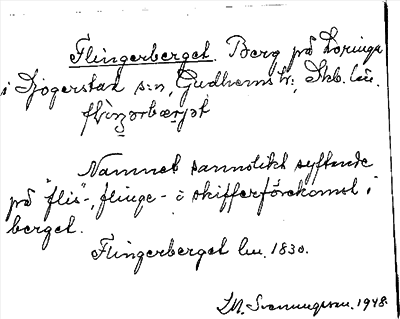 Flingerberget. Berg på Loringa
i Sjogerstad s:n, Gudhems hr:, Skb. län.
Namnet sannolikt syftande
på "flis"-, flinge- o skifferförekomst i
berget.
Flingerberget lm. 1830.
L.M. Svenungsson. 1948.